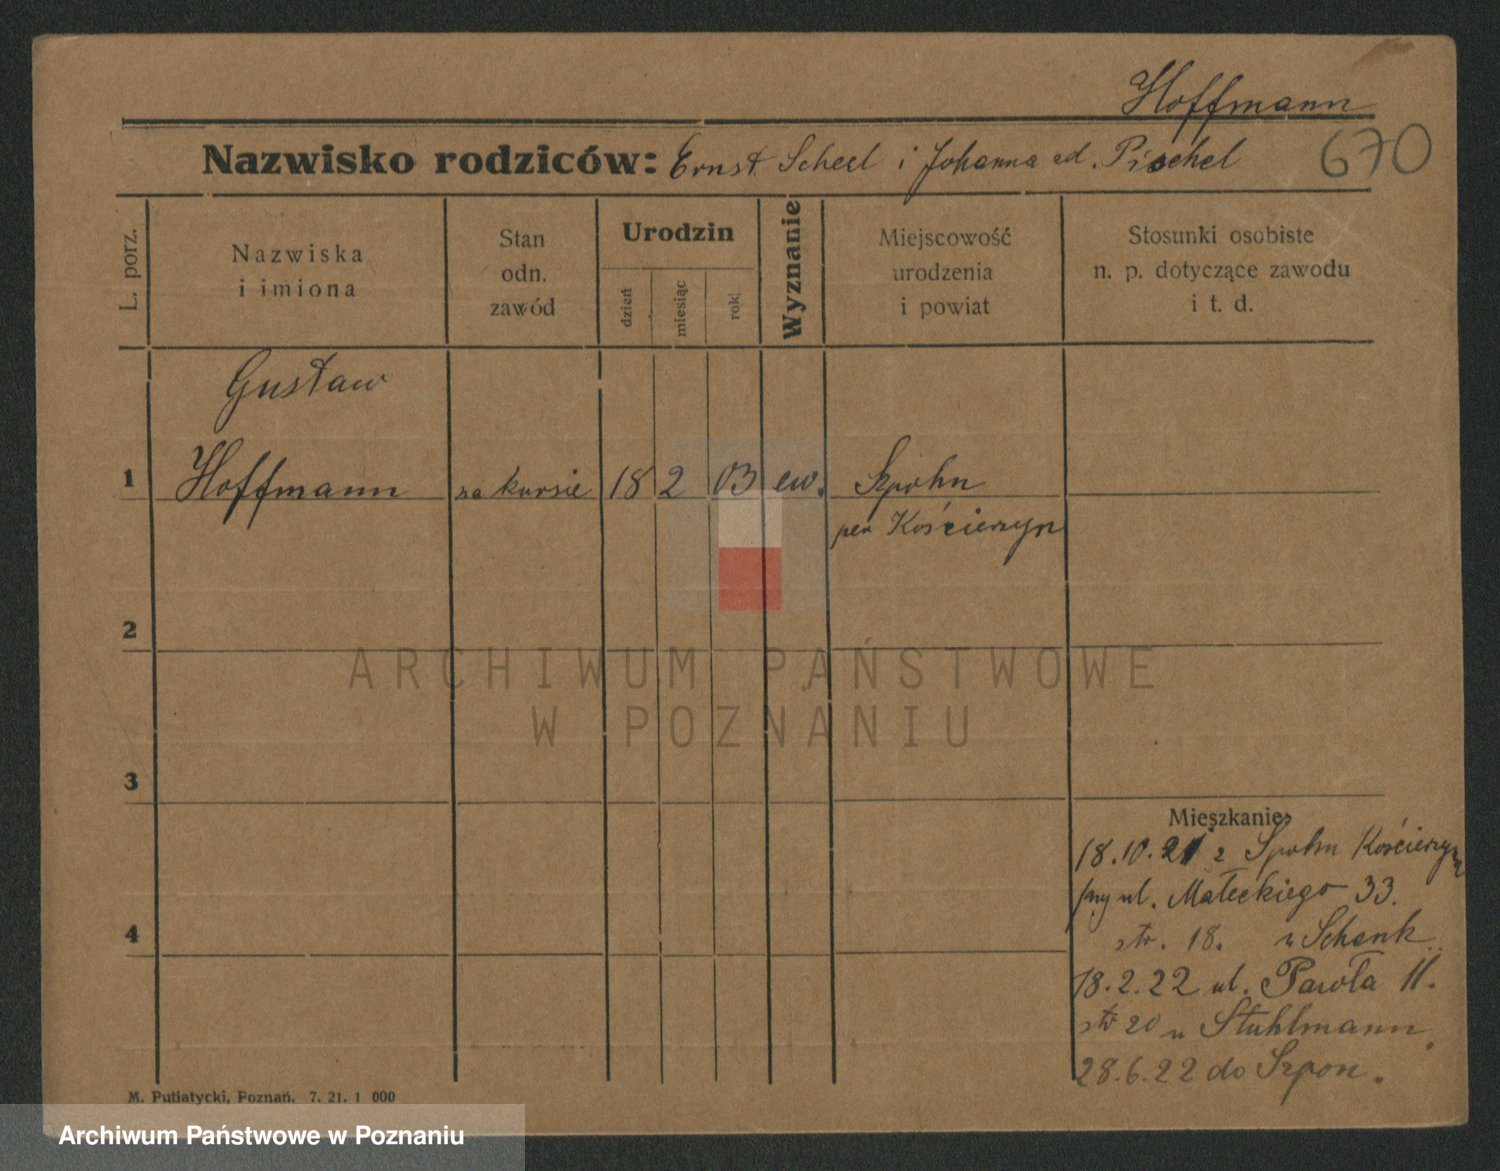 Hoffmann
Nazwisko rodziców: Ernst Scheel i Johanna Pischel
670
L. porz.
Nazwiska
i imiona
Stan
odn.
zawód
Urodzin
dzień
miesiąc
rok
Wyznanie
Miejscowość
urodzenia
i powiat
Stosunki osobiste
n. p. dotyczące zawodu
i t. d.
Gustaw
1 Hoffmann na kursie 18 2 03 ew. Szpohn
pow Kościerzyn
2
3
4
Mieszkanie
18.10.21 z Spohn Kościerzyn
przy ul. Małeckiego 33.
str. 18. u Schenk
18.2.22 ul. Pawła 11.
str 20 u Stuhlmann.
28.6.22 do Szpon.
M. Putiatycki, Poznań. 7. 21. 1 000
ARCHIWUM PAŃSTWOWE
W POZNANIU
Archiwum Państwowe w Poznaniu